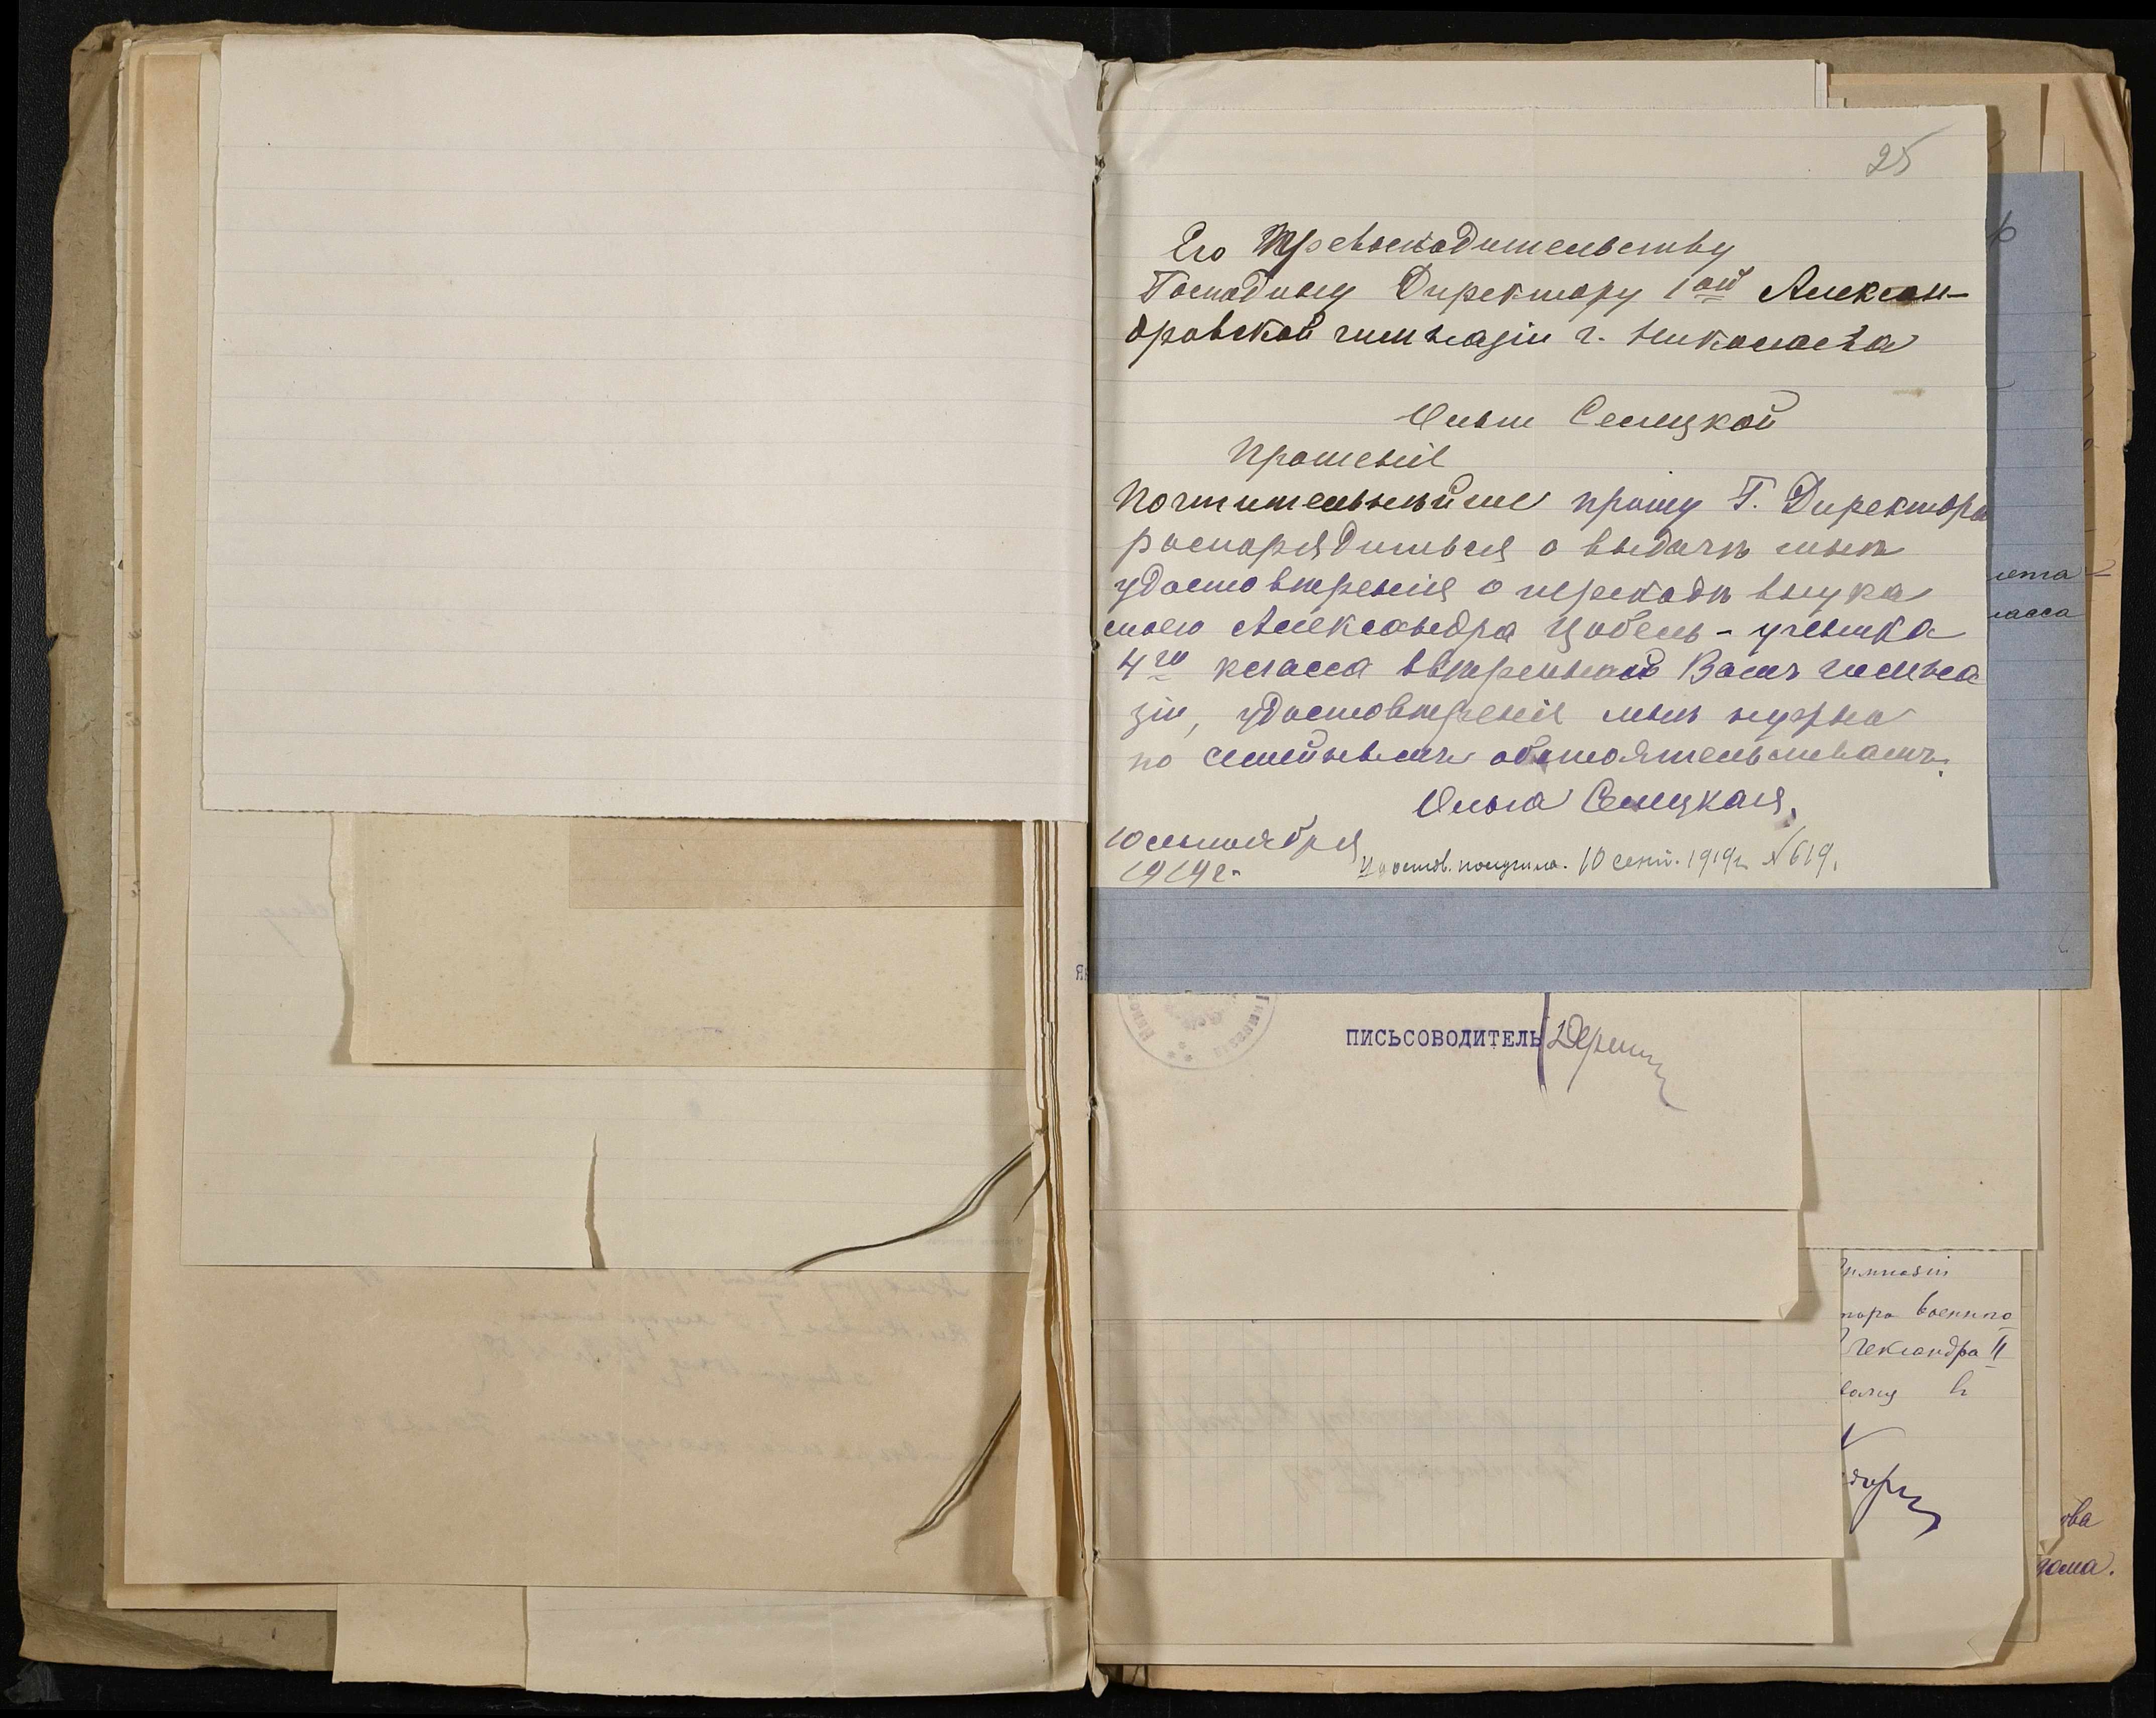 25
Его Превосходительству
Господину Директору 1ой Алексан-
дровской гимназіи г. Николаева
Ольги Семецкой
Прошеніе
Почтительнѣйше прошу Г. Директора
распорядиться о выдачѣ мнѣ
удостовѣренія о переходѣ внука
моего Александра Цобель - ученика
4го класса ввѣренной Вамъ гимна
зіи, удостовѣреніе мнѣ нужно
по семейнымъ обстоятельствамъ.
Ольга Семецкая.
10 сентября
1919 г.
Удостов. получила. 10 сент. 1919 г. № 619.
ласса
ПИСЬСОВОДИТЕЛЬ
Гимназіи
тора военно
Александра II
ова
дома.